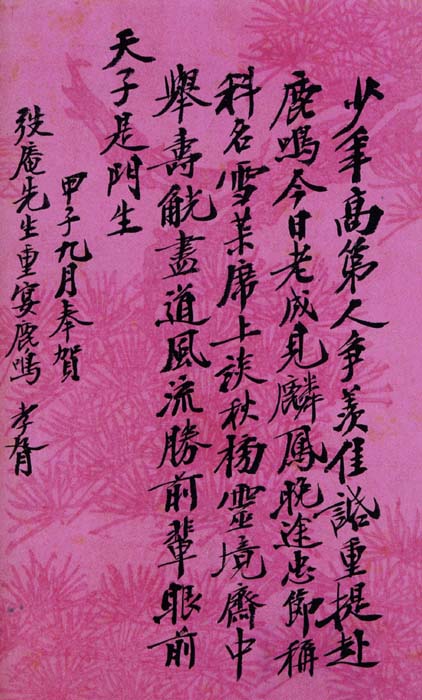 少年高第人爭羨佳話重提赴
鹿鳴今日老成見麟鳳晚途忠節稱
科名雪菜席上談秋榜靈境齋中
舉壽觥盡道風流勝前輩眼前
天子是門生
甲子九月奉賀
弢庵先生重宴鹿鳴 孝胥